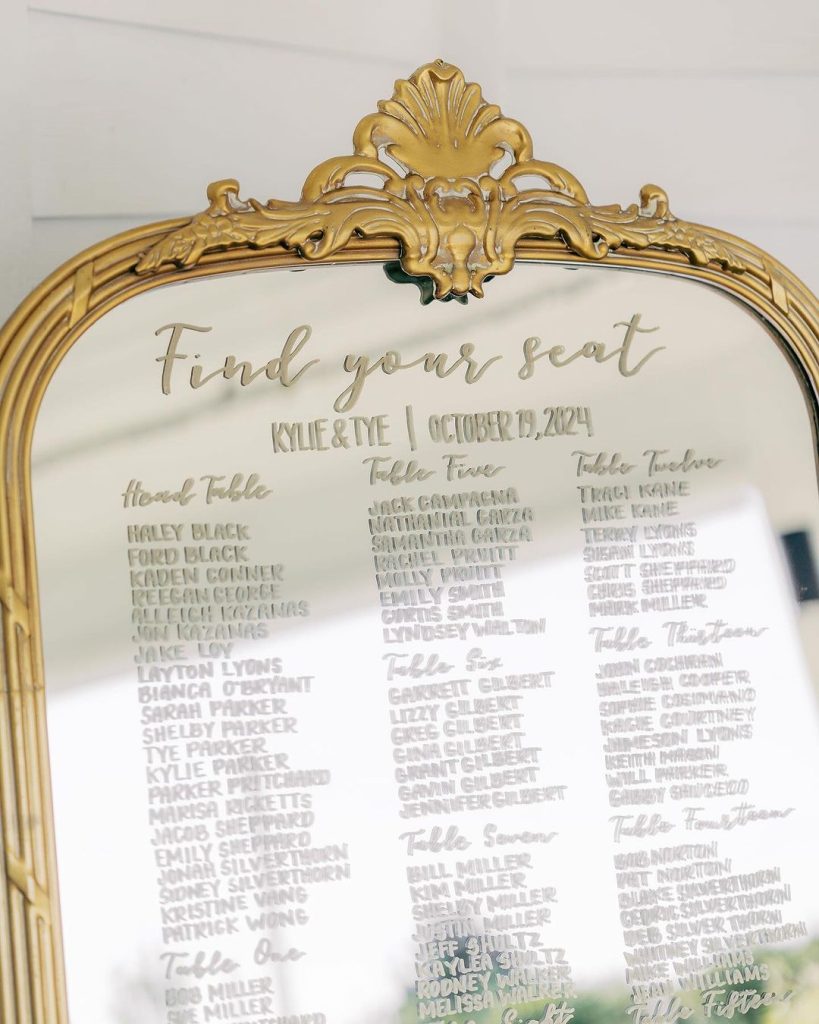 Find your seat
KYLIE & TYE | OCTOBER 19, 2024
Head Table
HALEY BLACK
FORD BLACK
KADEN CONNER
REEGAN GEORGE
ALLEIGH KAZANAS
JON KAZANAS
JAKE LOY
LAYTON LYONS
BIANCA O'BRYANT
SARAH PARKER
SHELBY PARKER
TYE PARKER
KYLIE PARKER
PARKER PRITCHARD
MARISA RICKETTS
JACOB SHEPPARD
EMILY SHEPPARD
JONAH SILVERTHORN
SIDNEY SILVERTHORN
KRISTINE VANG
PATRICK WONG
Table One
BOB MILLER
SUE MILLER
Table Five
JACK CAMPAGNA
NATHANIAL GARZA
SAMANTHA GARZA
RACHEL PRUITT
MOLLY PRUITT
EMILY SMITH
CURTIS SMITH
LYNDSEY WALTON
Table Six
GARRETT GILBERT
LIZZY GILBERT
GREG GILBERT
GINA GILBERT
GRANT GILBERT
GAVIN GILBERT
JENNIFER GILBERT
Table Seven
BILL MILLER
KIM MILLER
SHELBY MILLER
JUSTIN MILLER
JEFF SHULTZ
KAYLEA SHULTZ
RODNEY WALKER
MELISSA WALKER
Table Eight
Table Twelve
TRACI KANE
MIKE KANE
TERRY LYONS
SUSAN LYONS
SCOTT SHEPPARD
CHRIS SHEPPARD
MARK MILLER
Table Thirteen
JOHN COCHRAN
HALEIGH COOPER
SOPHIE COSIMANO
KACIE COURTNEY
JAMESON LYONS
KEITH MASON
WILL PARKER
GABBY
Table Fourteen
BOB NORTON
PAT NORTON
BLAKE SILVERTHORN
CEDRIC SILVERTHORN
DEB SILVERTHORN
WHITNEY SILVERTHORN
MIKE WILLIAMS
JEAN WILLIAMS
Table Fifteen